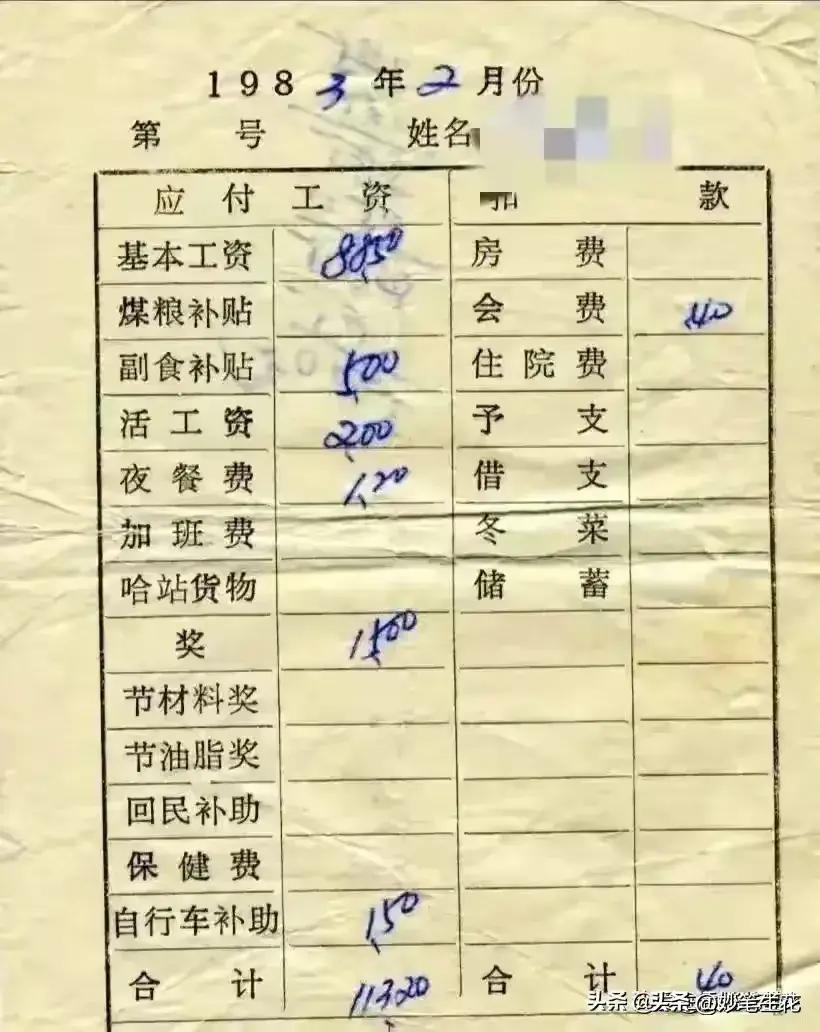 1983年2月份
第 号 姓名
应付工资 扣款
基本工资 88,50 房费
煤粮补贴 会费 .40
副食补贴 5,00 住院费
活工资 2,00 予支
夜餐费 1,20 借支
加班费 冬菜
哈站货物 储蓄
奖 15,00
节材料奖
节油脂奖
回民补助
保健费
自行车补助 1,50
合计 113,20 合计 .40
头条 @头条 @妙笔生花